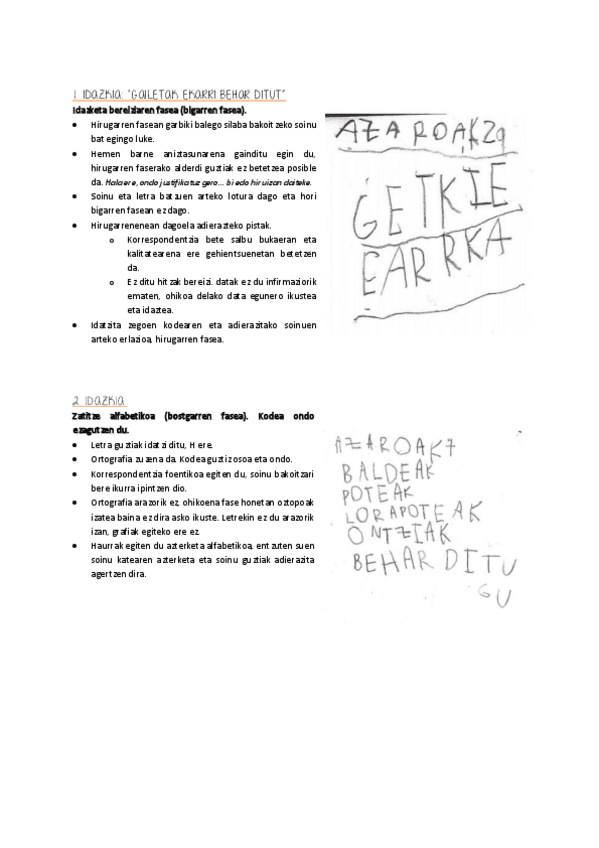 1. IDAZKIA: "GAILETAK EKARRI BEHAR DITUT"
Idazketa bereiziaren fasea (bigarren fasea).
• Hirugarren fasean garbiki balego silaba bakoitzeko soinu
bat egingo luke.
• Hemen barne aniztasunarena gainditu egin du,
hirugarren faserako alderdi guztiak ez betetzea posible
da. Hala ere, ondo justifikatuz gero... bi edo hiru izan daiteke.
• Soinu eta letra batzuen arteko lotura dago eta hori
bigarren fasean ez dago.
• Hirugarrenenean dagoela adierazteko pistak.
o Korrespondentzia bete salbu bukaeran eta
kalitatearena ere gehientsuenetan betetzen
da.
o Ez ditu hitzak bereizi. datak ez du infirmaziorik
ematen, ohikoa delako data egunero ikustea
eta idaztea.
• Idatzita zegoen kodearen eta adierazitako soinuen
arteko erlazioa, hirugarren fasea.
AZAROAK29
GETKIE
EARRKA
2. IDAZKIA
Zatitze alfabetikoa (bostgarren fasea). Kodea ondo
ezagutzen du.
• Letra guztiak idatzi ditu, H ere.
• Ortografia zuzena da. Kodea guztiz osoa eta ondo.
• Korrespondentzia foentikoa egiten du, soinu bakoitzari
bere ikurra ipintzen dio.
• Ortografia arazorik ez, ohikoena fase honetan oztopoak
izatea baina ez dira asko ikuste. Letrekin ez du arazorik
izan, grafiak egiteko ere ez.
• Haurrak egiten du azterketa alfabetikoa, entzuten suen
soinu katearen azterketa eta soinu guztiak adierazita
agertzen dira.
AZAROAK7
BALDEAK
POTEAK
LORAPOTEAK
ONTZIAK
BEHAR DITU
GU